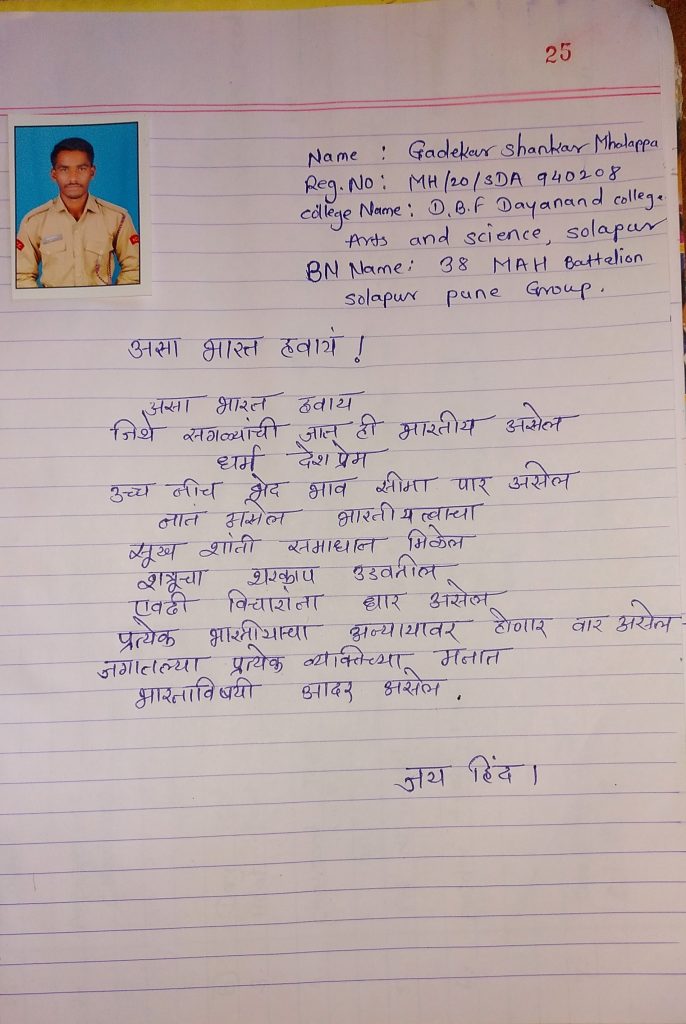 25
Name : Gadekar Shankar Mhalappa
Reg. No : MH/20/SDA 940208
college Name : D.B.F Dayanand college
Arts and science, solapur
BN Name : 38 MAH Battalion
solapur pune Group.
असा भारत हवाय !
असा भारत हवाय
जिथे सगळ्यांची जात ही भारतीय असेल
धर्म देश प्रेम
उच्च नीच भेद भाव सीमा पार असेल
नातं असेल भारतीयत्वाचा
सूख शांती समाधान मिळेल
शत्रूचा थरकाप उडवतील
एवढी विचारांना धार असेल
प्रत्येक भारतीयाचा अन्यायावर होणार वार असेल
जगातल्या प्रत्येक व्यक्तिच्या मनात
भारताविषयी आदर असेल .
जय हिंद ।